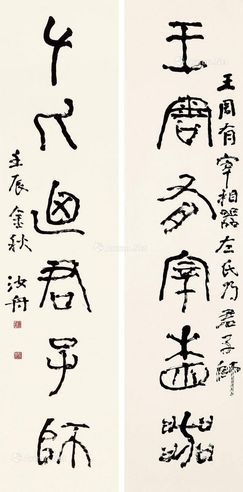 王周有宰相器
王周有宰相器左氏乃君子師
左氏乃君子師
壬辰金秋
汝舟